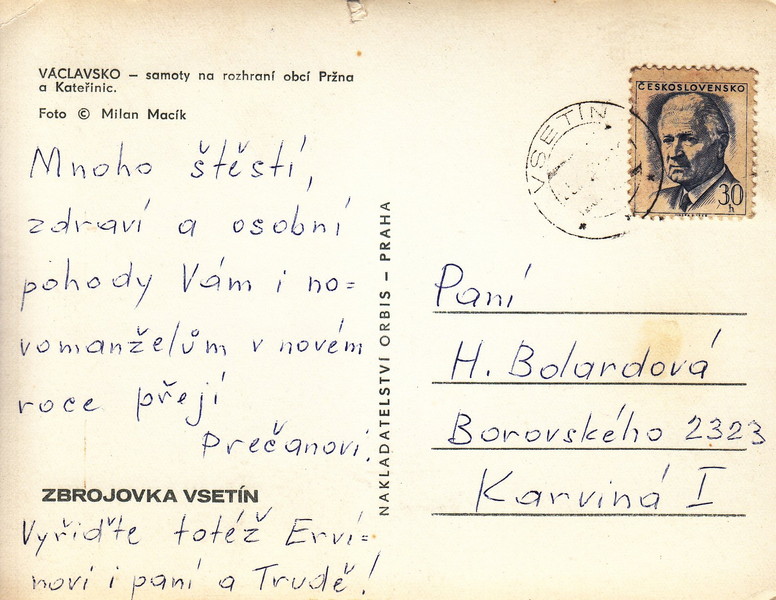 VÁCLAVSKO – samoty na rozhraní obcí Pržna
a Kateřinic.
Foto © Milan Macík
Mnoho štěstí,
zdraví a osobní
pohody Vám i no=
vomanželům v novém
roce přejí
Prečanovi.
ZBROJOVKA VSETÍN
Vyřiďte totéž Ervi=
novi i paní a Trudě!
NAKLADATELSTVÍ ORBIS – PRAHA
VSETÍN
ČESKOSLOVENSKO
30
h
Paní
H. Bolardová
Borovského 2323
Karviná I